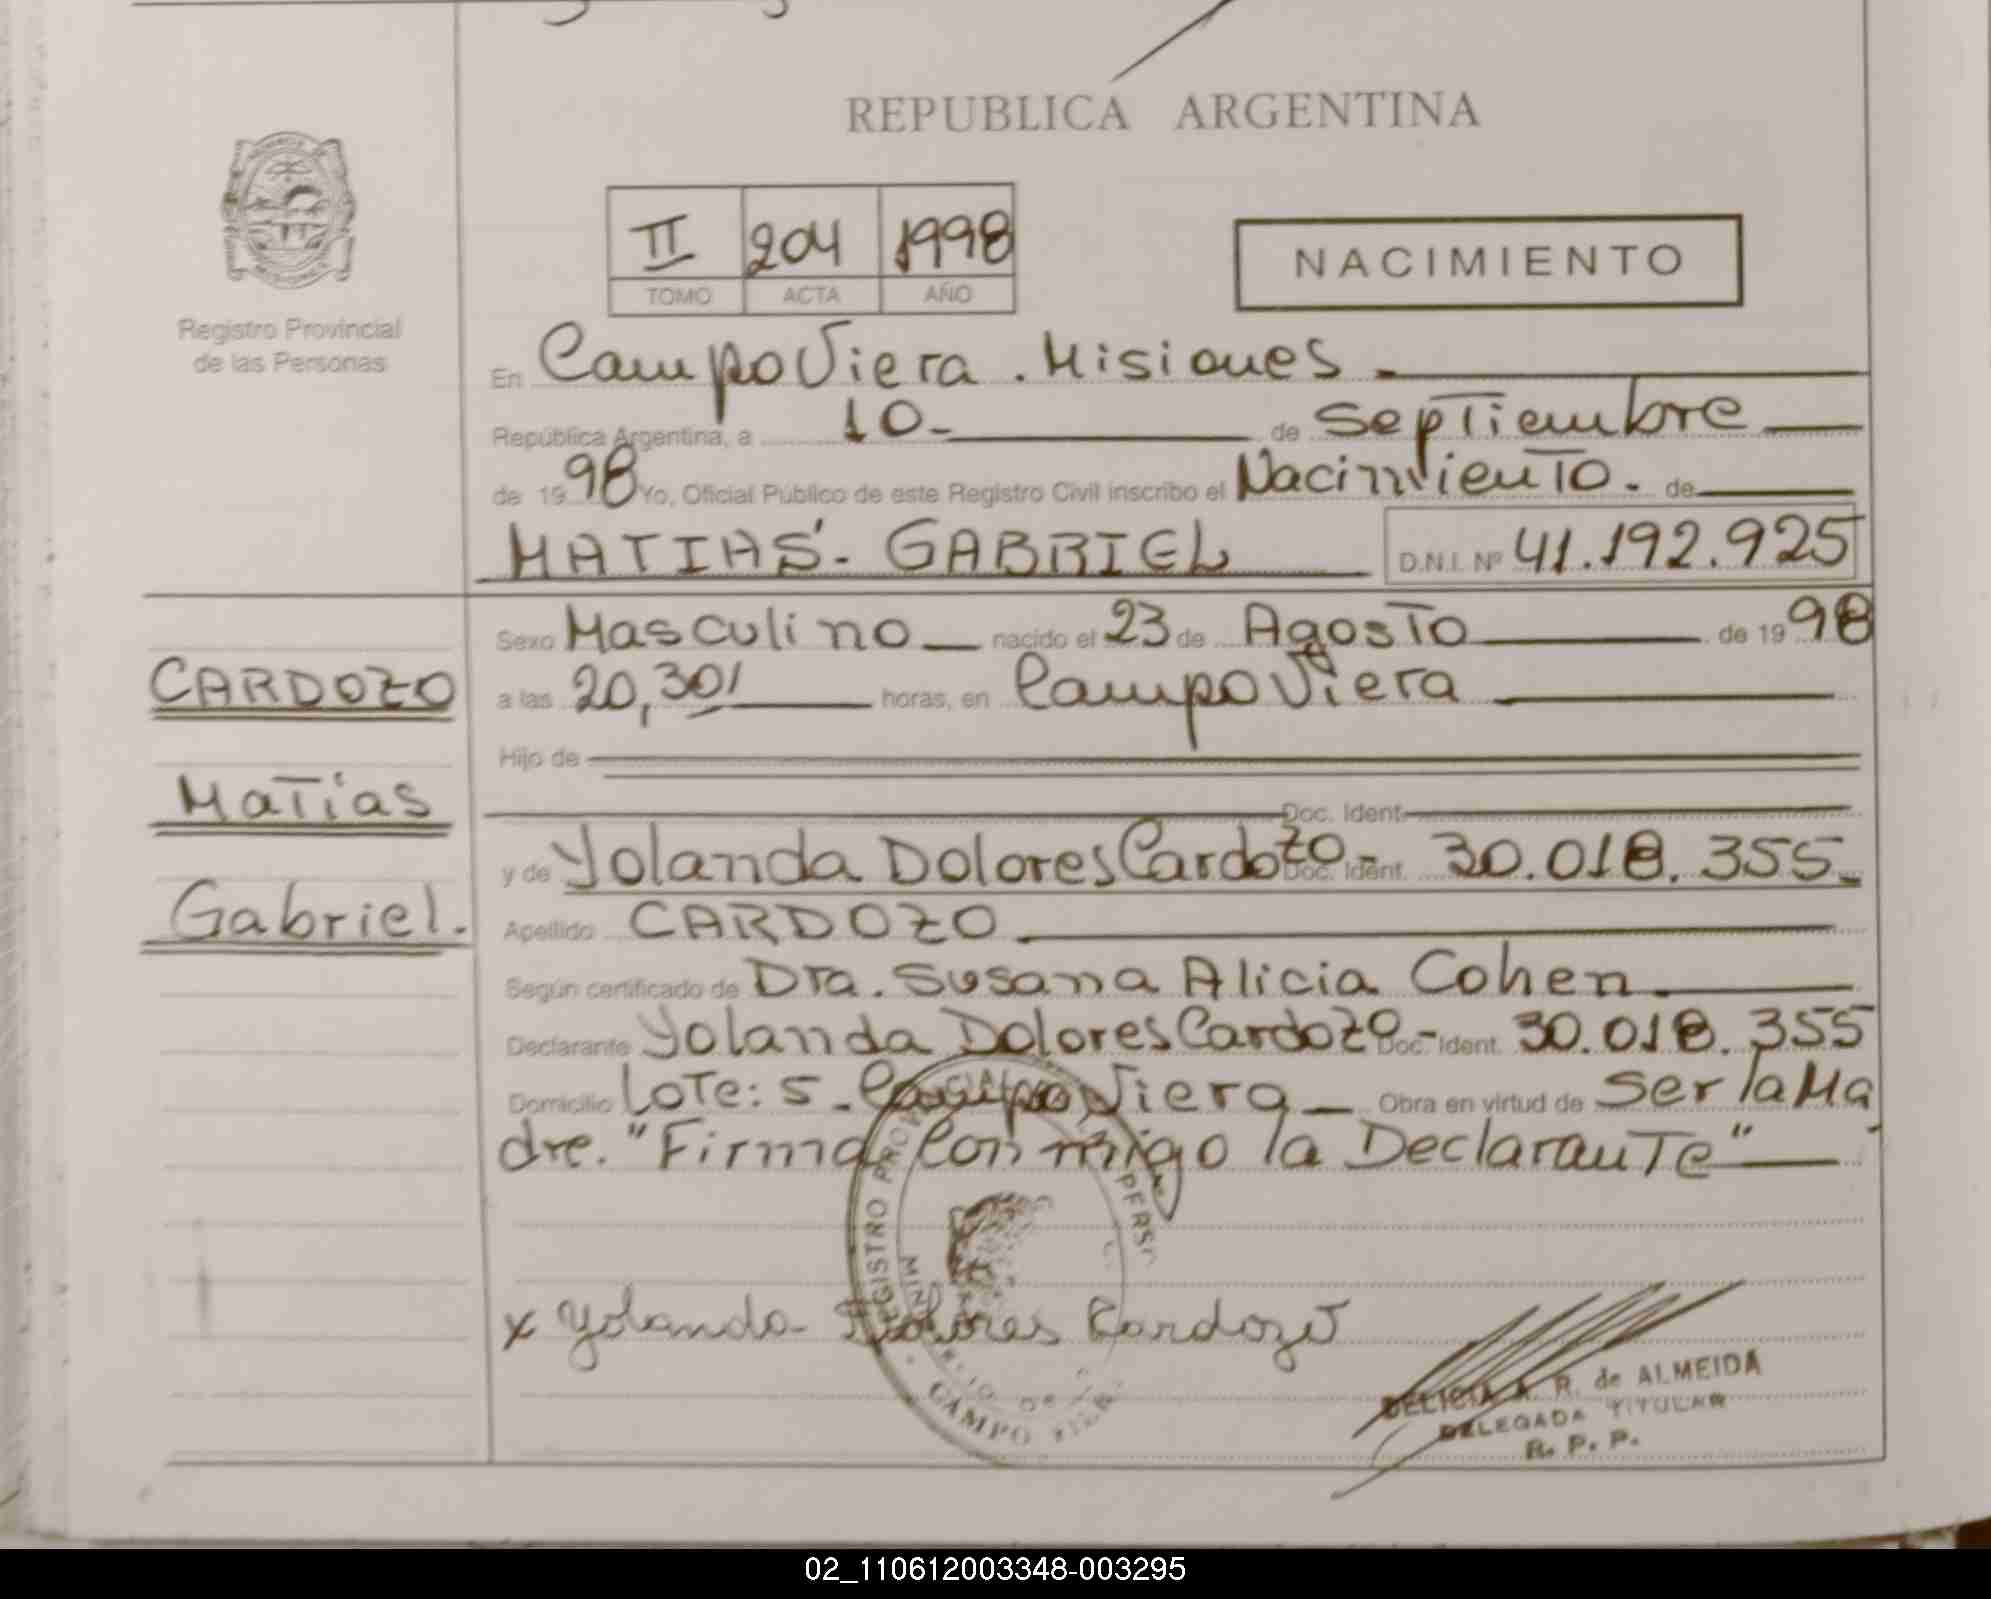 REPUBLICA ARGENTINA
Registro Provincial
de las Personas
II 204 1998
TOMO ACTA AÑO
NACIMIENTO
En Campo Viera. Misiones.
República Argentina, a 10- de Septiembre
de 1998 Yo, Oficial Público de este Registro Civil inscribo el Nacimiento. de
MATIAS- GABRIEL D.N.I. Nº 41.192.925
Sexo Masculino nacido el 23 de Agosto de 1998
CARDOZO
a las 20,30' horas, en Campo Viera
Hijo de
Matias
Doc. Ident.
y de Yolanda Dolores Cardozo- Doc. Ident. 30.018.355-
Gabriel.
Apellido CARDOZO
Según certificado de Dra. Susana Alicia Cohen.
Declarante Yolanda Dolores Cardozo- Doc. Ident. 30.018.355
Domicilio Lote: 5- Campo Viera Obra en virtud de ser la Ma
dre. "Firma Conmigo la Declarante"
REGISTRO PROVINCIAL
CAMPO VIERA
x Yolanda Dolores Cardozo
DELICIA A. R. de ALMEIDA
DELEGADA TITULAR
R. P. P.
02_110612003348-003295